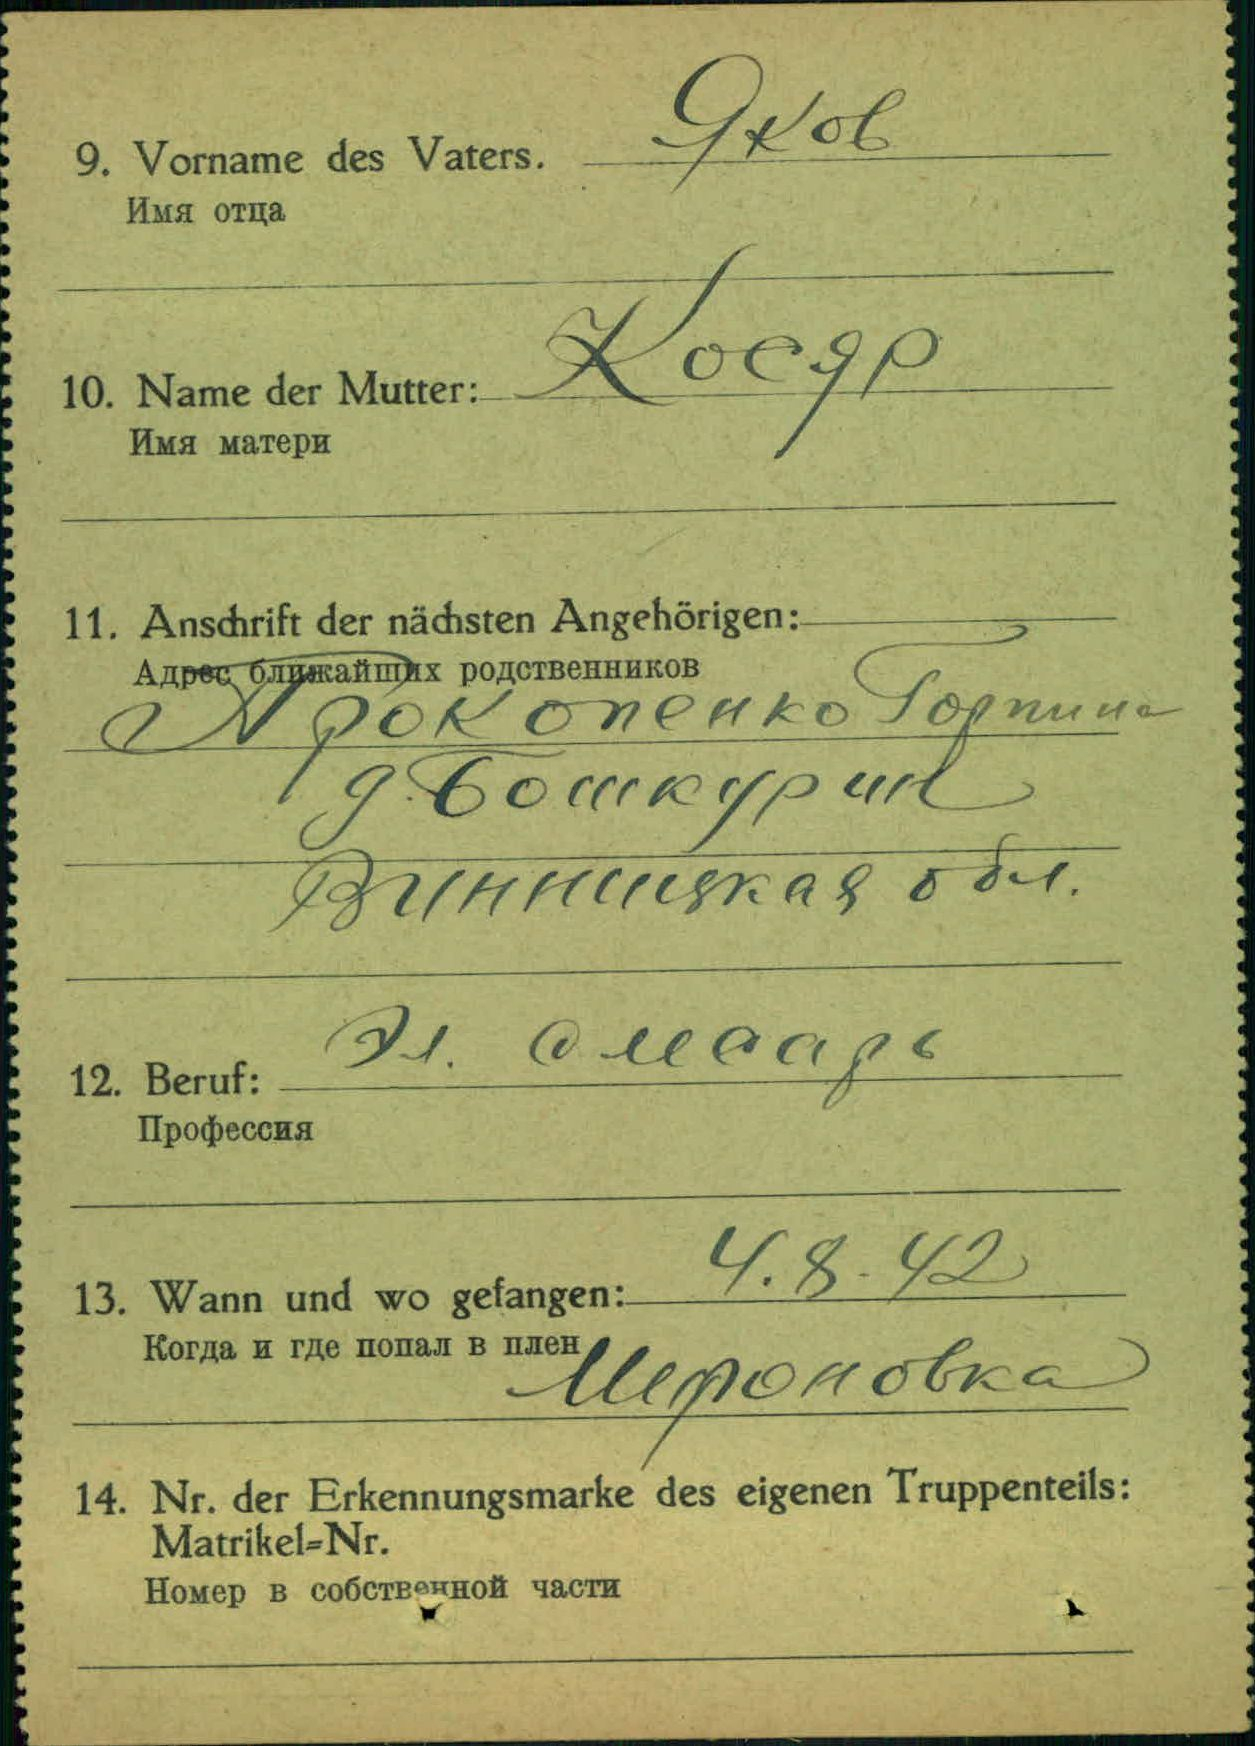 9. Vorname des Vaters. Яков
Имя отца
10. Name der Mutter: Косяр
Имя матери
11. Anschrift der nächsten Angehörigen:
Адрес ближайших родственников
Прокопенко Горпина
д. Бошкурин
Винницкая обл.
12. Beruf: Эл. слесарь
Профессия
13. Wann und wo gefangen: 4.8.42
Когда и где попал в плен
Мероновка
14. Nr. der Erkennungsmarke des eigenen Truppenteils:
Matrikel=Nr.
Номер в собственной части